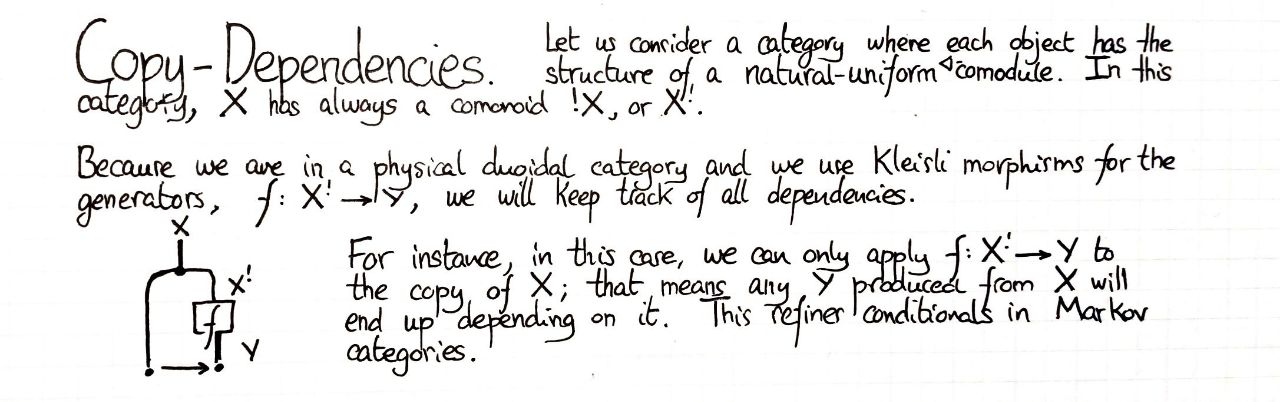 Copy-Dependencies. Let us consider a category where each object has the
structure of a natural-uniform ◁comodule. In this
category, X has always a comonoid !X, or X!.
Because we are in a physical duoidal category and we use Kleisli morphisms for the
generators, f: X! → Y, we will keep track of all dependencies.
X
X!
f
Y
For instance, in this case, we can only apply f: X! → Y to
the copy of X; that means any Y produced from X will
end up depending on it. This refines conditionals in Markov
categories.